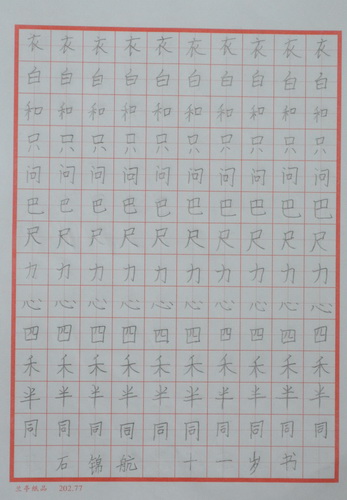 衣衣衣衣衣衣衣衣衣衣
白白白白白白白白白白
和和和和和和和和和和
只只只只只只只只只只
问问问问问问问问问问
巴巴巴巴巴巴巴巴巴巴
尺尺尺尺尺尺尺尺尺尺
力力力力力力力力力力
心心心心心心心心心心
四四四四四四四四四四
禾禾禾禾禾禾禾禾禾禾
半半半半半半半半半半
同同同同同同同同同同
石锦航 十一岁书
兰亭纸品 202.77